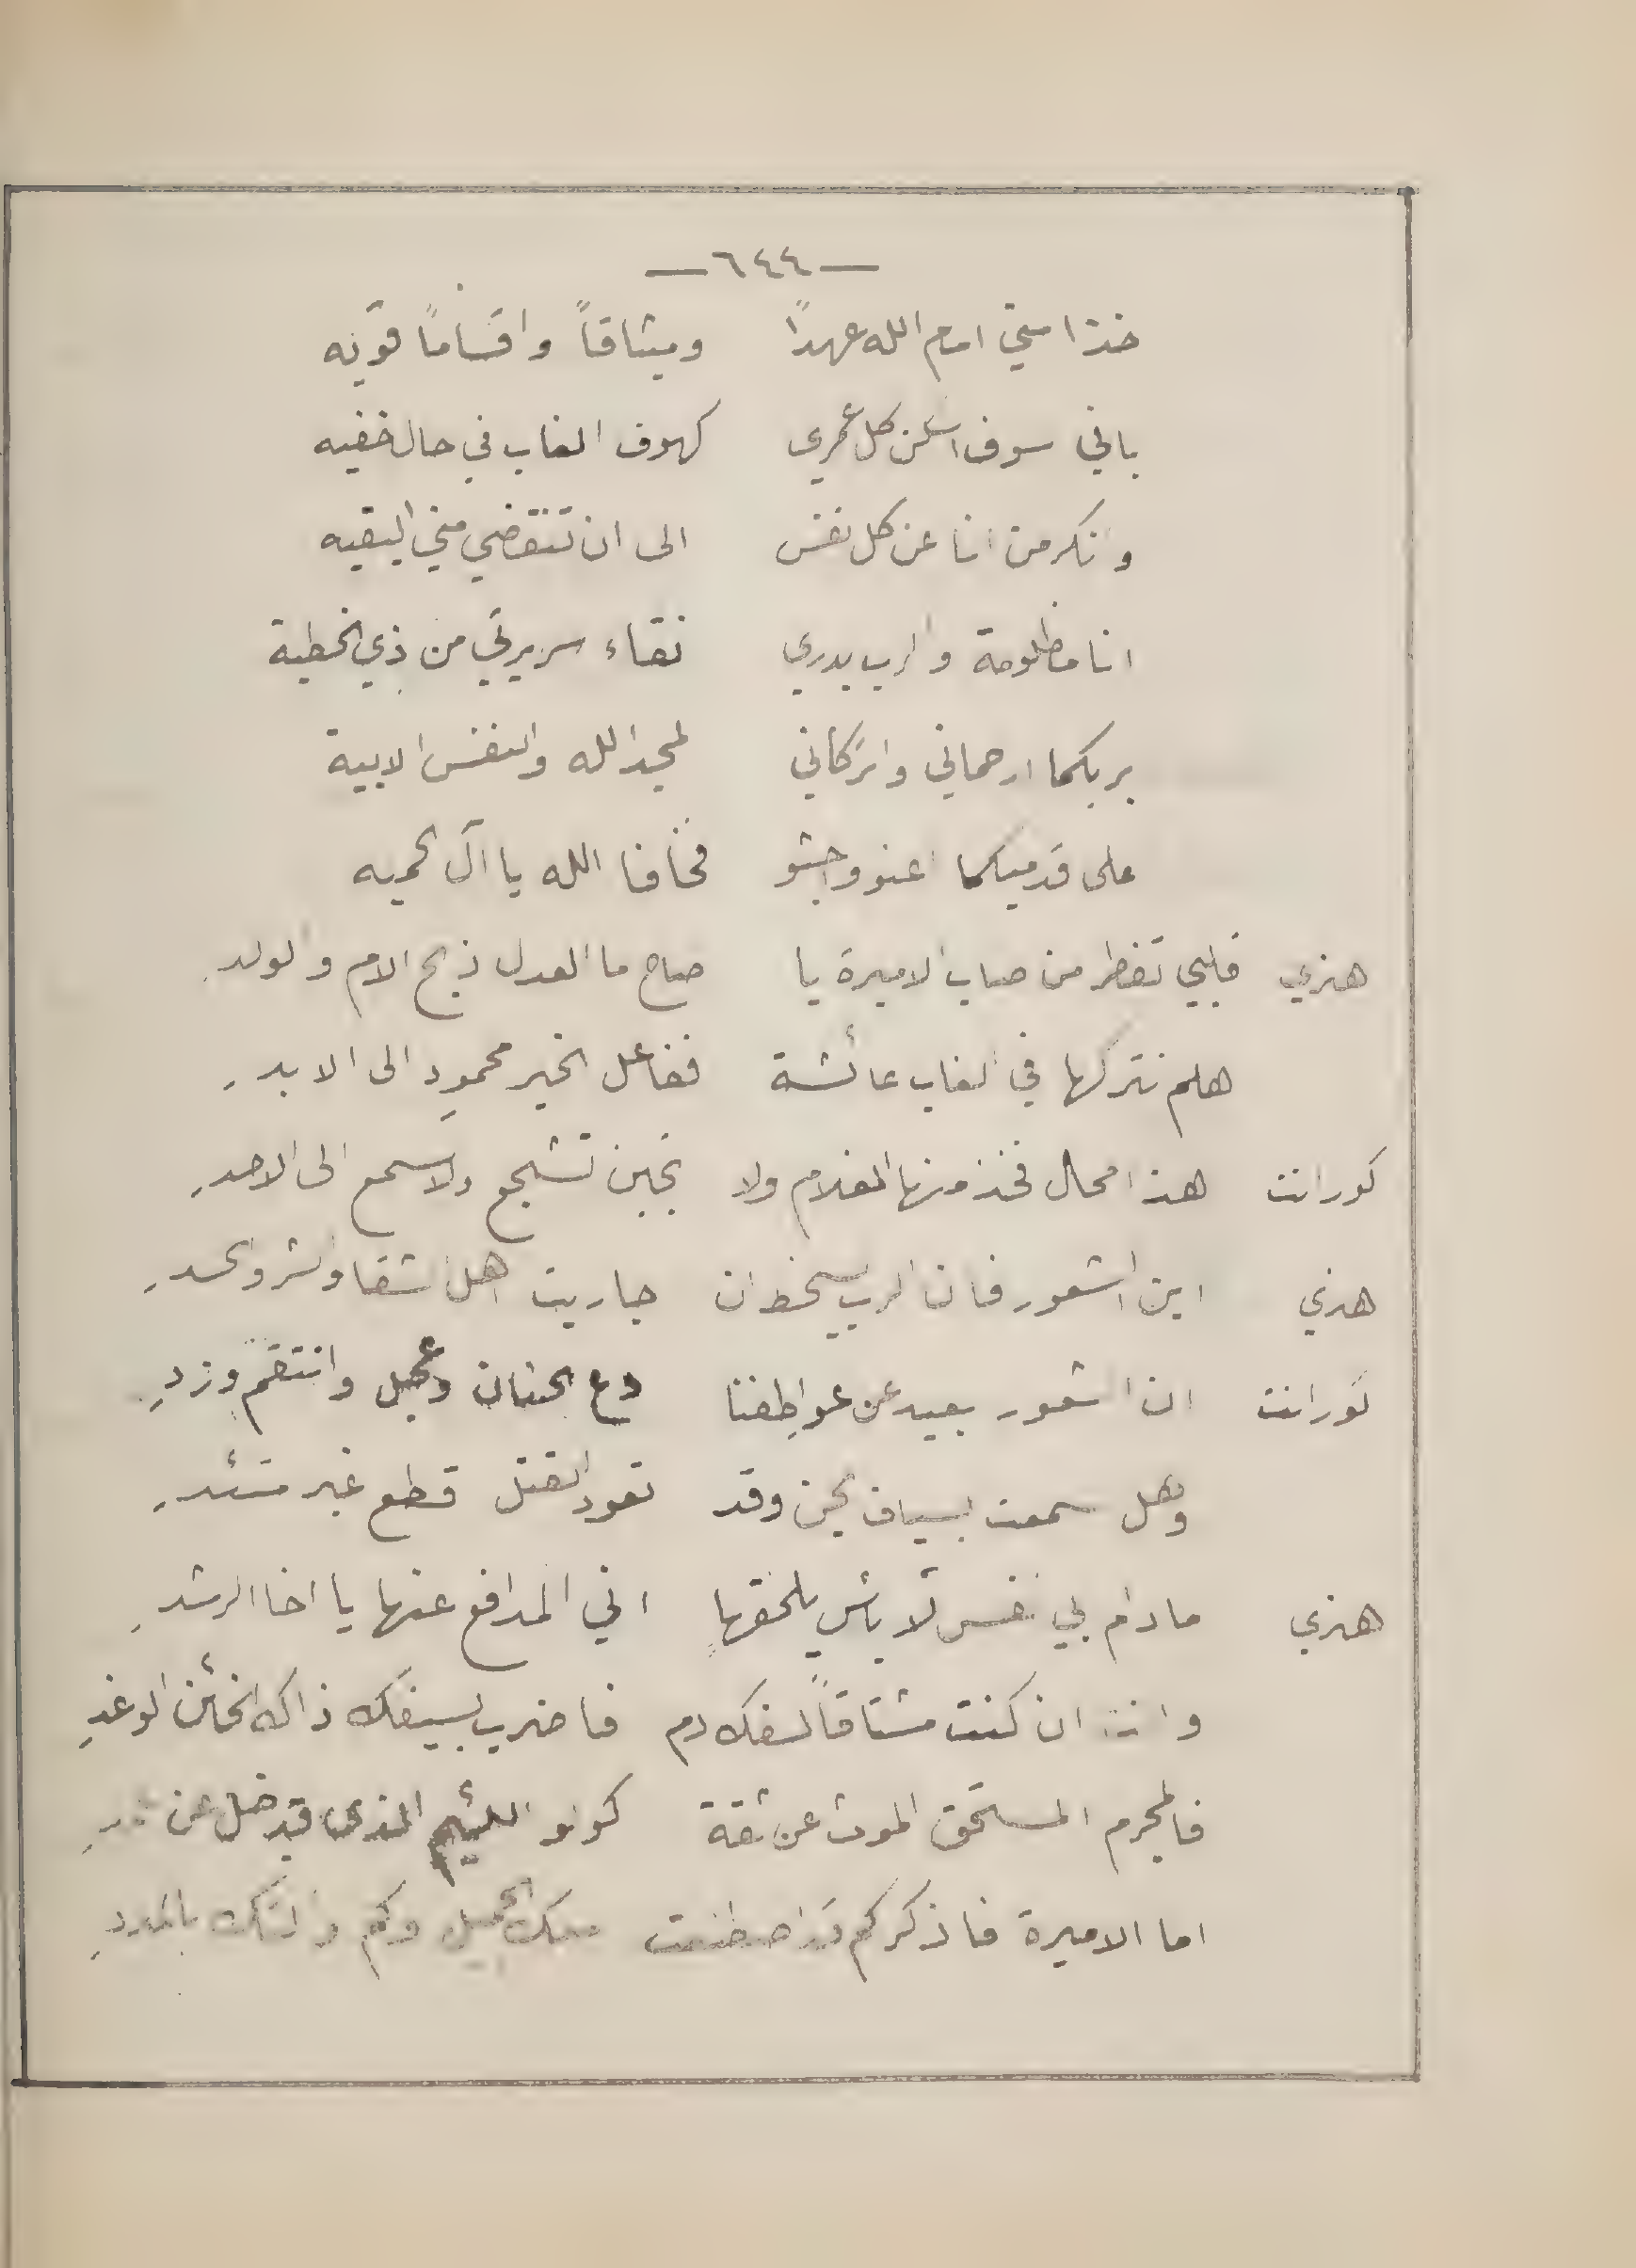 —٦٤٤—
خذا مني امام الله عهدًا ويثاقاً واقساماً قويه
باني سوف اسكن كل عمري كهوف الغاب في حال خفيه
وانكر من انا عن كل نفس الى ان تنقضي مني البقيه
انا مظلومة والرب يدري نقاء سريرتي من ذي الخطية
بربكما ارحماني واتركاني لمجد الله والنفس الابية
على قدميكما اعنو واجثو فخافا الله يا آل الحميه
هنري قلبي تفطر من مصاب الاميرة يا صاح ما العدل ذبح الام والولد
هلم نتركها في الغاب عائشة ففاعل الخير محمود الى الابد
كورانت هذا محال فخذ منها الغلام ولا تجبن تشجع ولا تسمع الى الاحد
هنري اين الشعور فان الرب يسخط ان جاريت اهل الشقا والشر والحسد
كورانت ان الشعور بعيد عن عواطفنا دع الحنان وعجل وانتقم وزد
وهل سمعت بسياف يحن وقد تعود القتل قطع غير متئد
هنري مادام بي نفس لا بأس يلحقها اني المدافع عنها يا اخا الرشد
وانت ان كنت مشتاقاً لسفك دم فاضرب بسيفك ذاك الخائن الوغد
فالمجرم المستحق الموت عن ثقة كونو اللئيم الذي قد ضل عن
اما الاميرة فاذكر كم قد اصطنعت معك الجميل وكم بالمدد